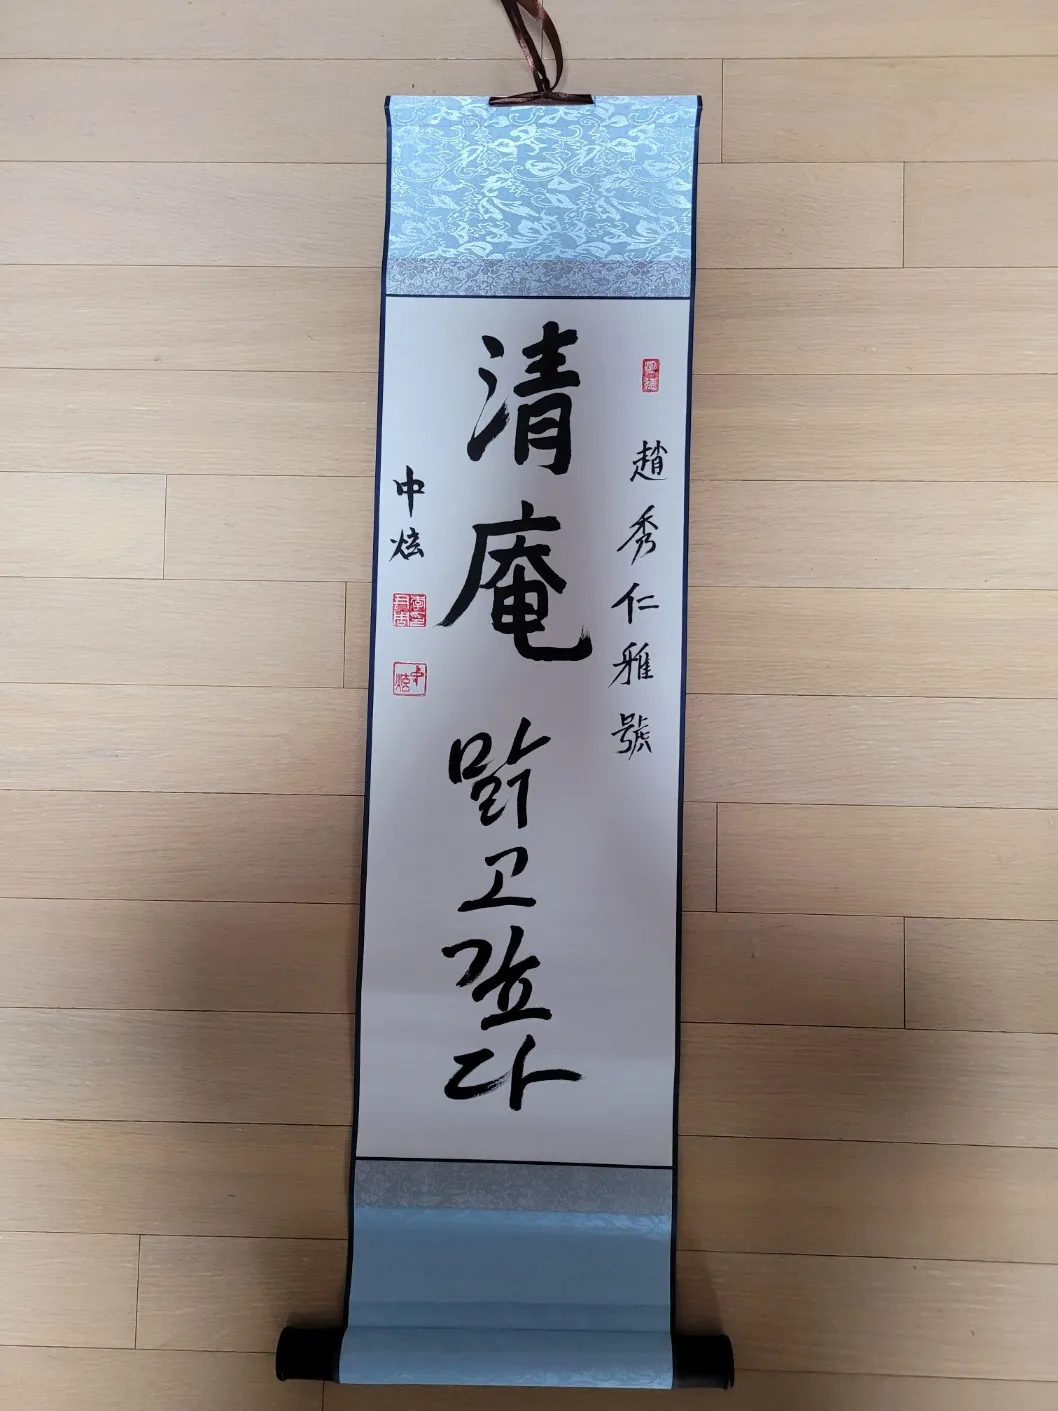 趙秀仁雅號
清庵
맑고깊다
中炫
中炫